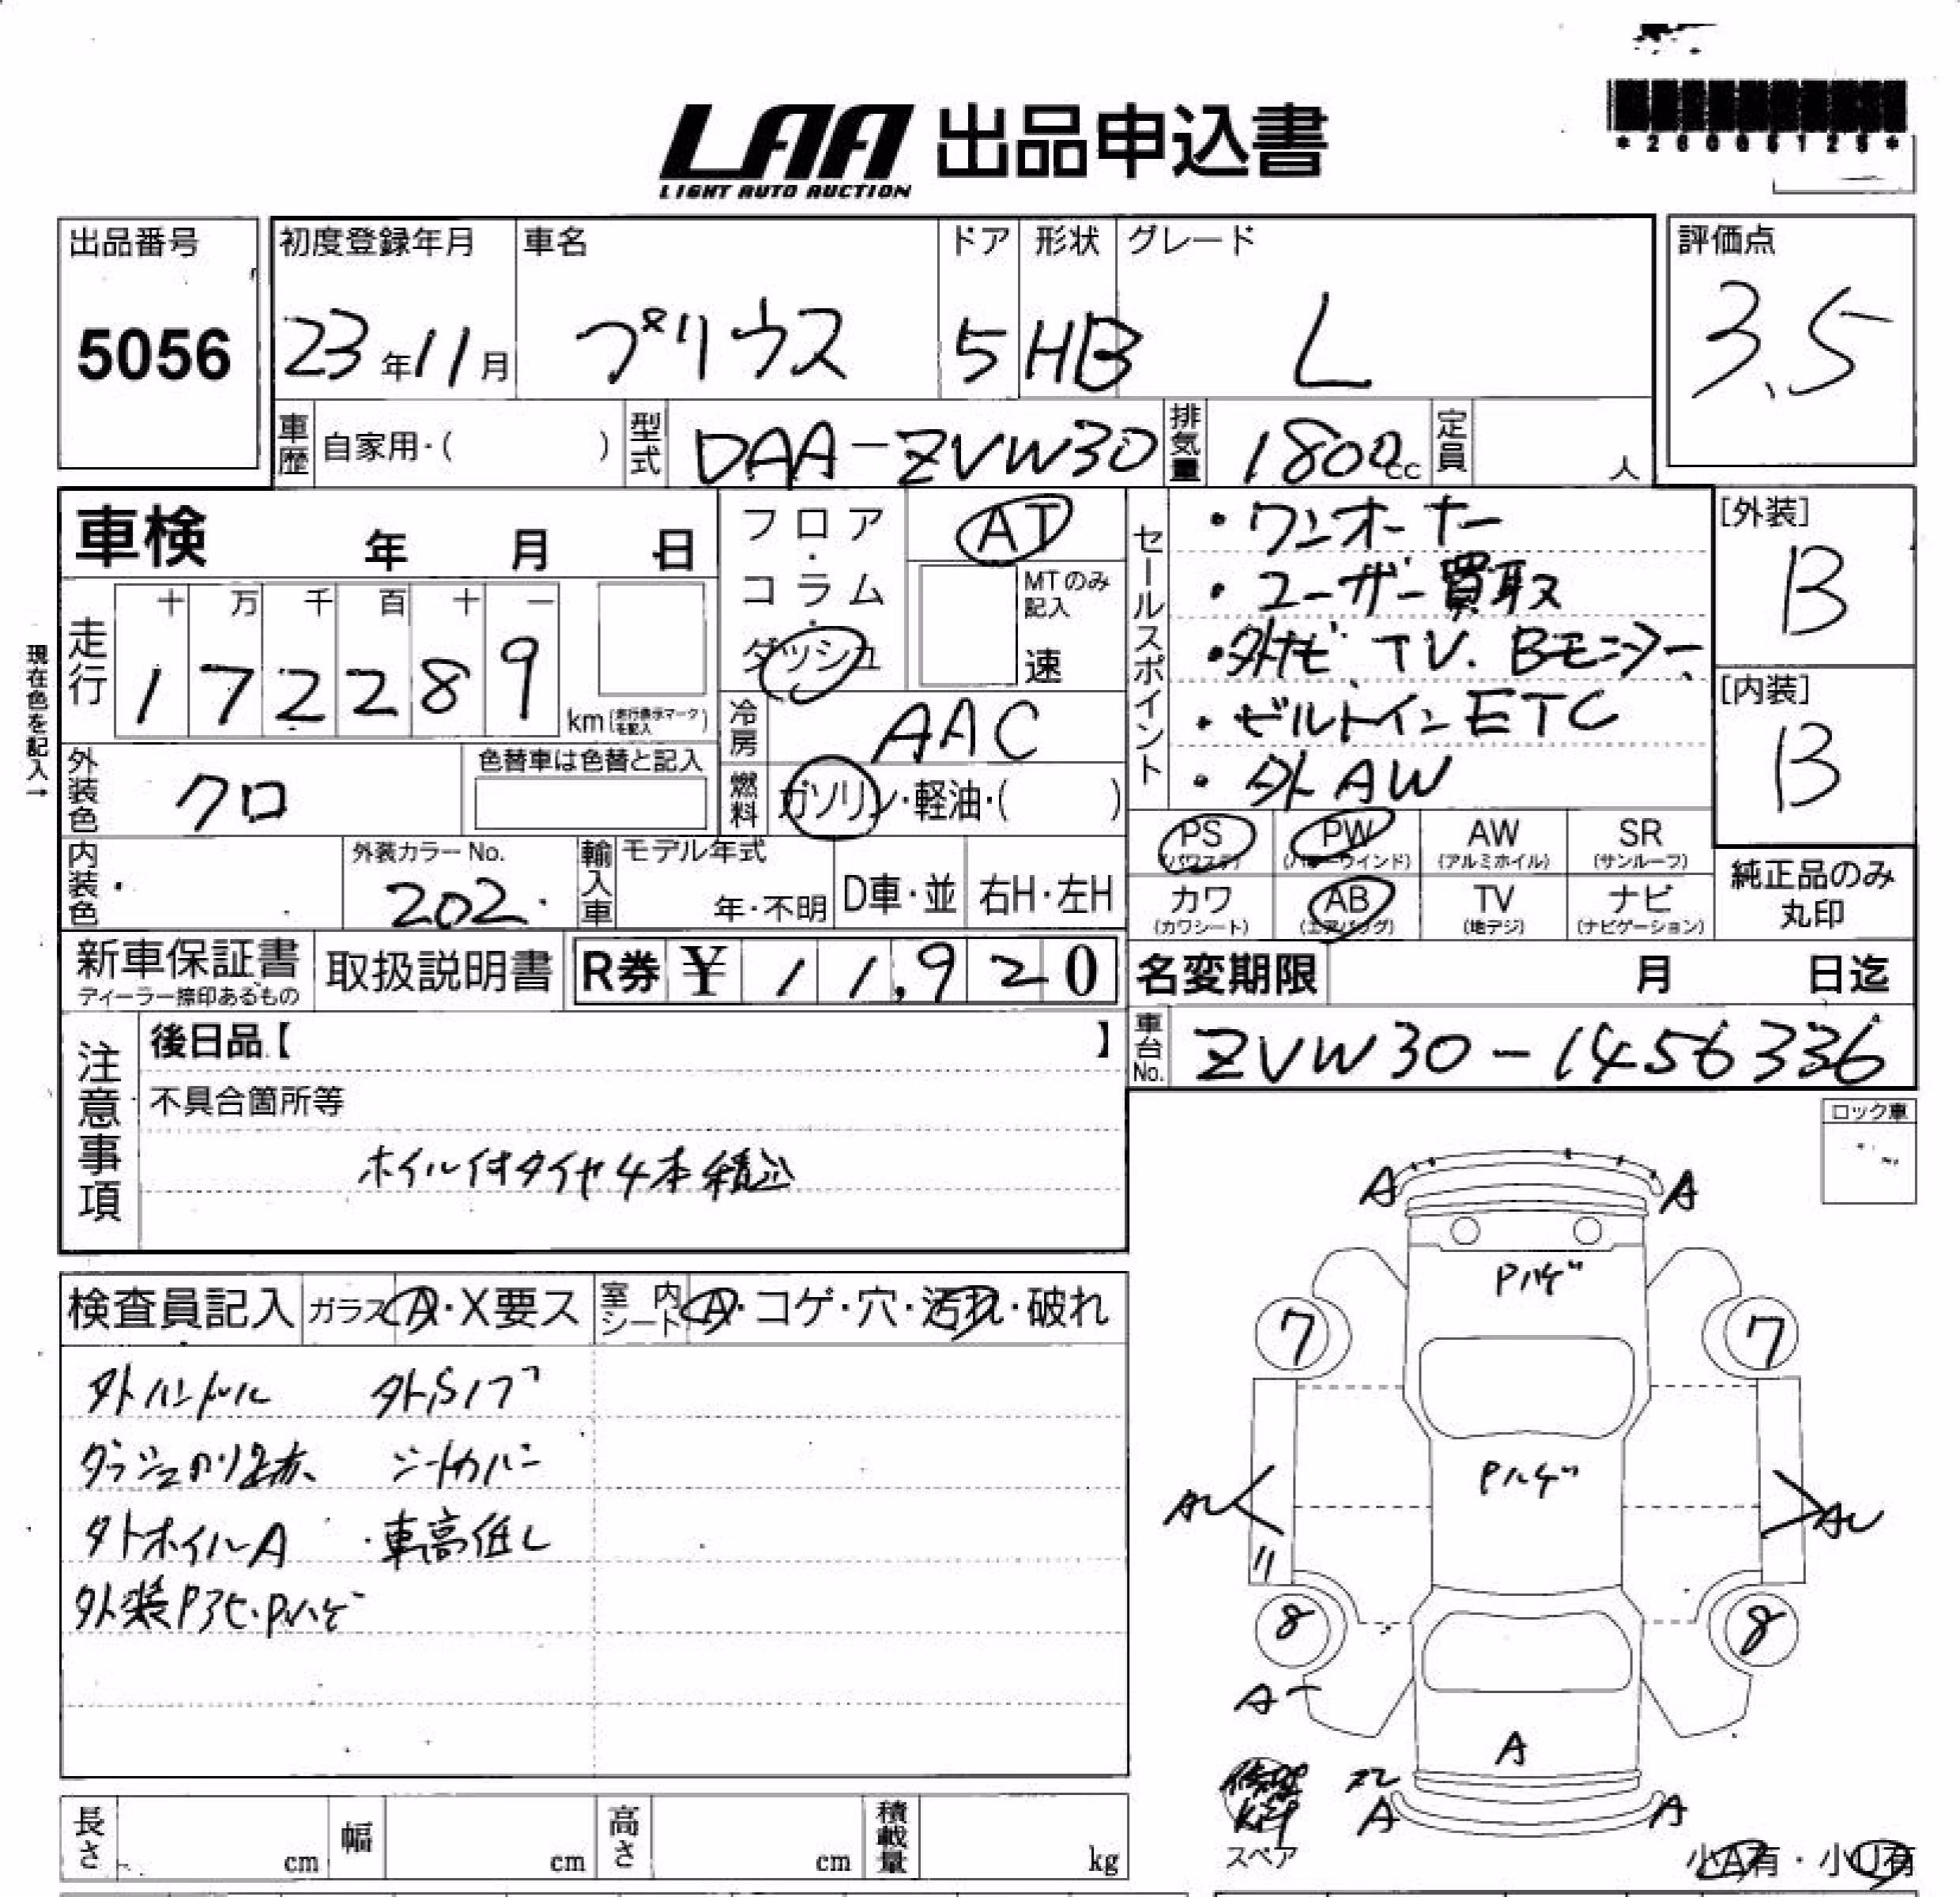 *26005125*
LAA 出品申込書
LIGHT AUTO AUCTION
出品番号 初度登録年月 車名 ドア 形状 グレード 評価点
5056 23年11月 プリウス 5 HB L 3.5
車歴 自家用・( ) 型式 DAA-ZVW30 排気量 1800cc 定員 人
車検 年 月 日
フロア・コラム・ダッシュ
AT
MTのみ記入
速
現在色を記入→
走行 十 万 千 百 十 一
172289 km(走行表示マークを記入)
冷房 AAC
燃料 ガソリン・軽油・( )
外装色 クロ 色替車は色替と記入
内装色 外装カラーNo. 202 輸入車 モデル年式 年・不明 D車・並 右H・左H
セールスポイント
・ワンオーナー
・ユーザー買取
・外ナビ TV. Bモニター
・ビルトインETC
・外AW
[外装]
B
[内装]
B
PS (パワステ) PW (パワーウインド) AW (アルミホイル) SR (サンルーフ)
カワ (カワシート) AB (エアバッグ) TV (地デジ) ナビ (ナビゲーション)
純正品のみ丸印
新車保証書 ディーラー捺印あるもの 取扱説明書 R券 ¥ 11,920
名変期限 月 日迄
車台No. ZVW30-1456336
注意事項
後日品【 】
不具合箇所等
ホイル付タイヤ4本積込
ロック車
検査員記入 ガラス A・X要ス 室内シート A・コゲ・穴・汚れ・破れ
外ハンドル 外Sノブ
ダッシュのり跡 シートカバー
外ホイルA ・車高低し
外装P劣化・Pハゲ
A A
Pハゲ
7 7
Pハゲ
AU AU
8 8
A
A
A A
スペア
小A有・小U有
長さ cm 幅 cm 高さ cm 積載量 kg